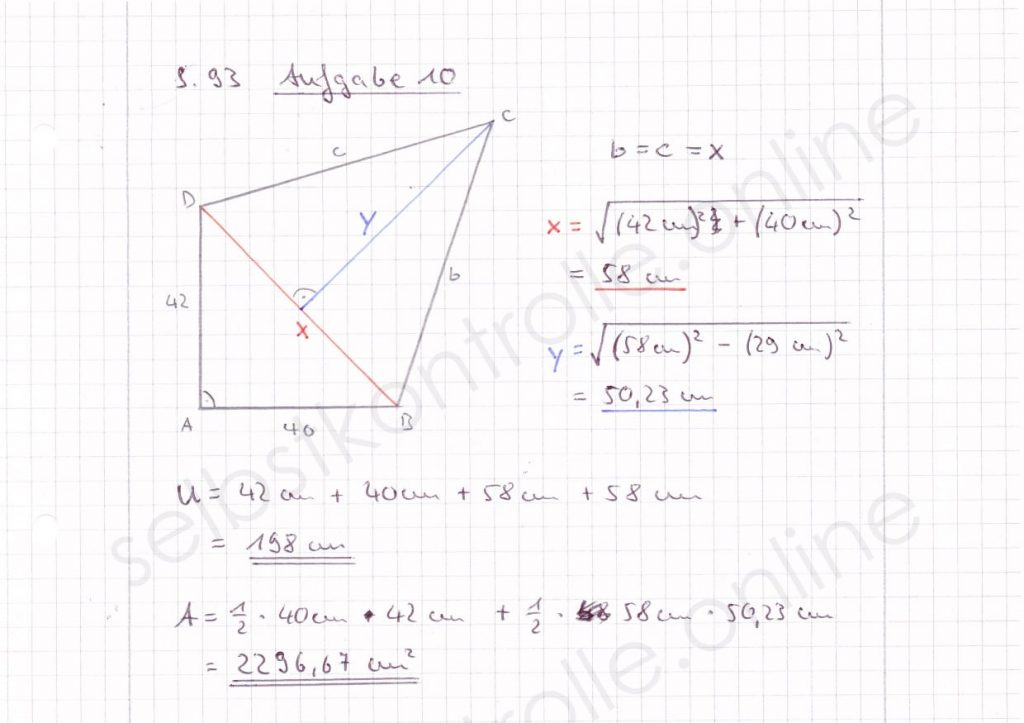 S. 93 Aufgabe 10
C
c
b = c = x
D
y
x = √(42 cm)² + (40 cm)²
b
= 58 cm
42
x
y = √(58 cm)² - (29 cm)²
= 50,23 cm
A
40
B
U = 42 cm + 40 cm + 58 cm + 58 cm
= 198 cm
A = 1/2 · 40 cm · 42 cm + 1/2 · 58 cm · 50,23 cm
= 2296,67 cm²
selbstkontrolle.online
selbstkontrolle.online